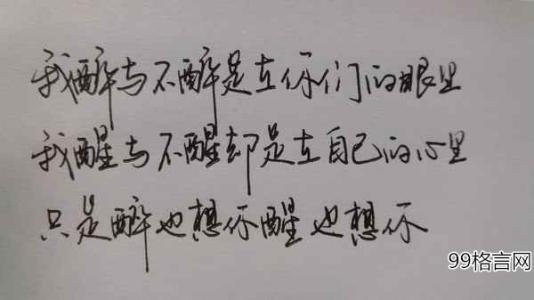 我醉与不醉是在你们的眼里
我醒与不醒却是在自己的心里
只是醉也想你醒也想你
99格言网